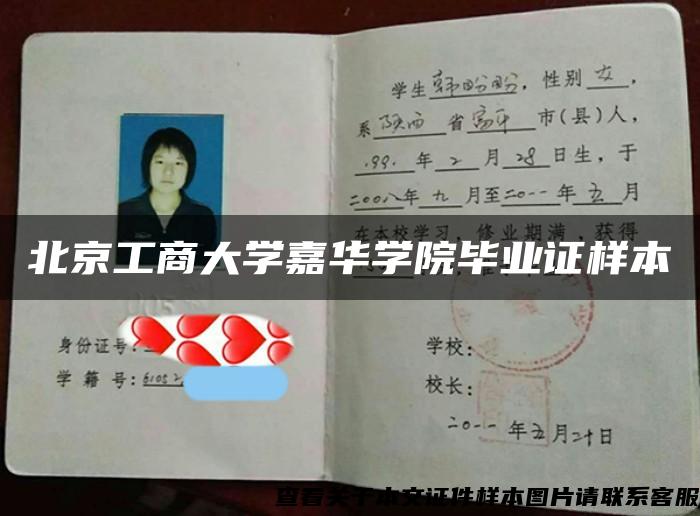 学生韩盼盼,性别女,
系陕西省富平市(县)人,
.991年2月28日生,于
二00八年九月至二0一一年五月
在本校学习,修业期满,获得
北京工商大学嘉华学院毕业证样本
身份证号:
学籍号:61052
学校:
校长:
二0一一年五月二十日
查看关于本文证件样本图片请联系客服